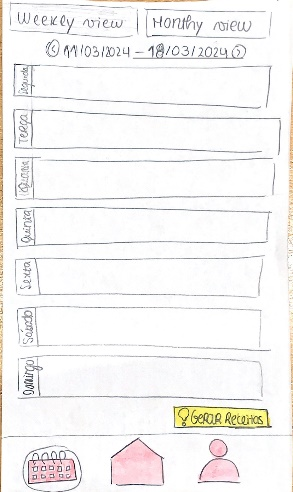 Weekly view
Monthly view
11/03/2024 - 18/03/2024
Segunda
Terça
Quarta
Quinta
Sexta
Sábado
Domingo
Gerar Receitas